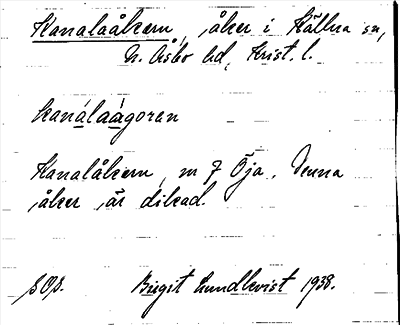 Kanalaåkern, åker i Källna sn,
N. Åsbo hd, Krist. l.
kanálaágoran
Kanalåkern, nr 7 Öja. Denna
åker är dikad.
Birgit Lundkvist 1938.